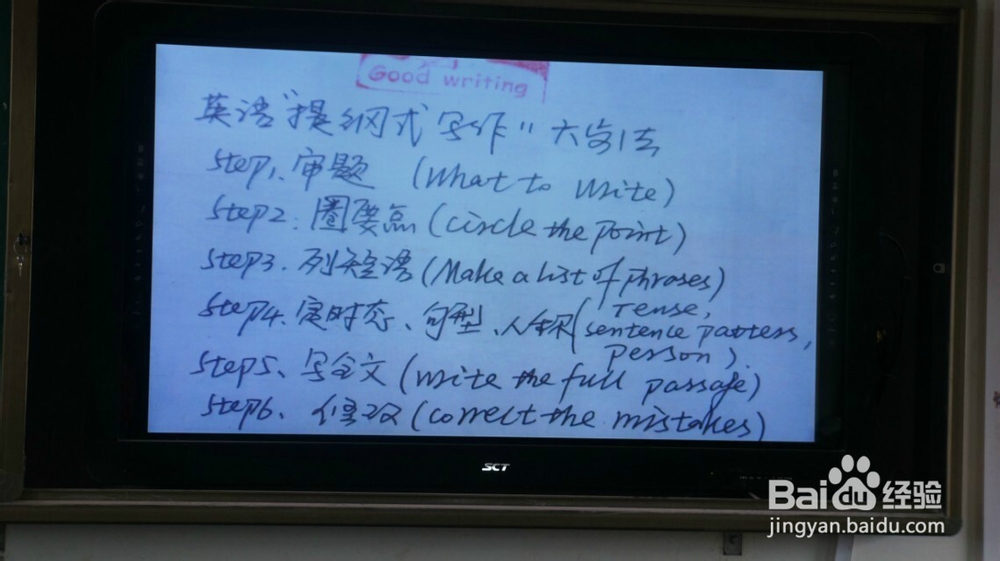 Good writing
英语"提纲式写作"六步法
Step1、审题 (What to write)
Step2. 圈要点 (circle the point)
Step3. 列短语 (Make a list of phrases)
Step4. 定时态、句型、人称 (Tense,
sentence patters,
person).
Step5、写全文 (write the full passage)
Step6、修改 (correct the mistakes)
SCT
Baidu经验
jingyan.baidu.com